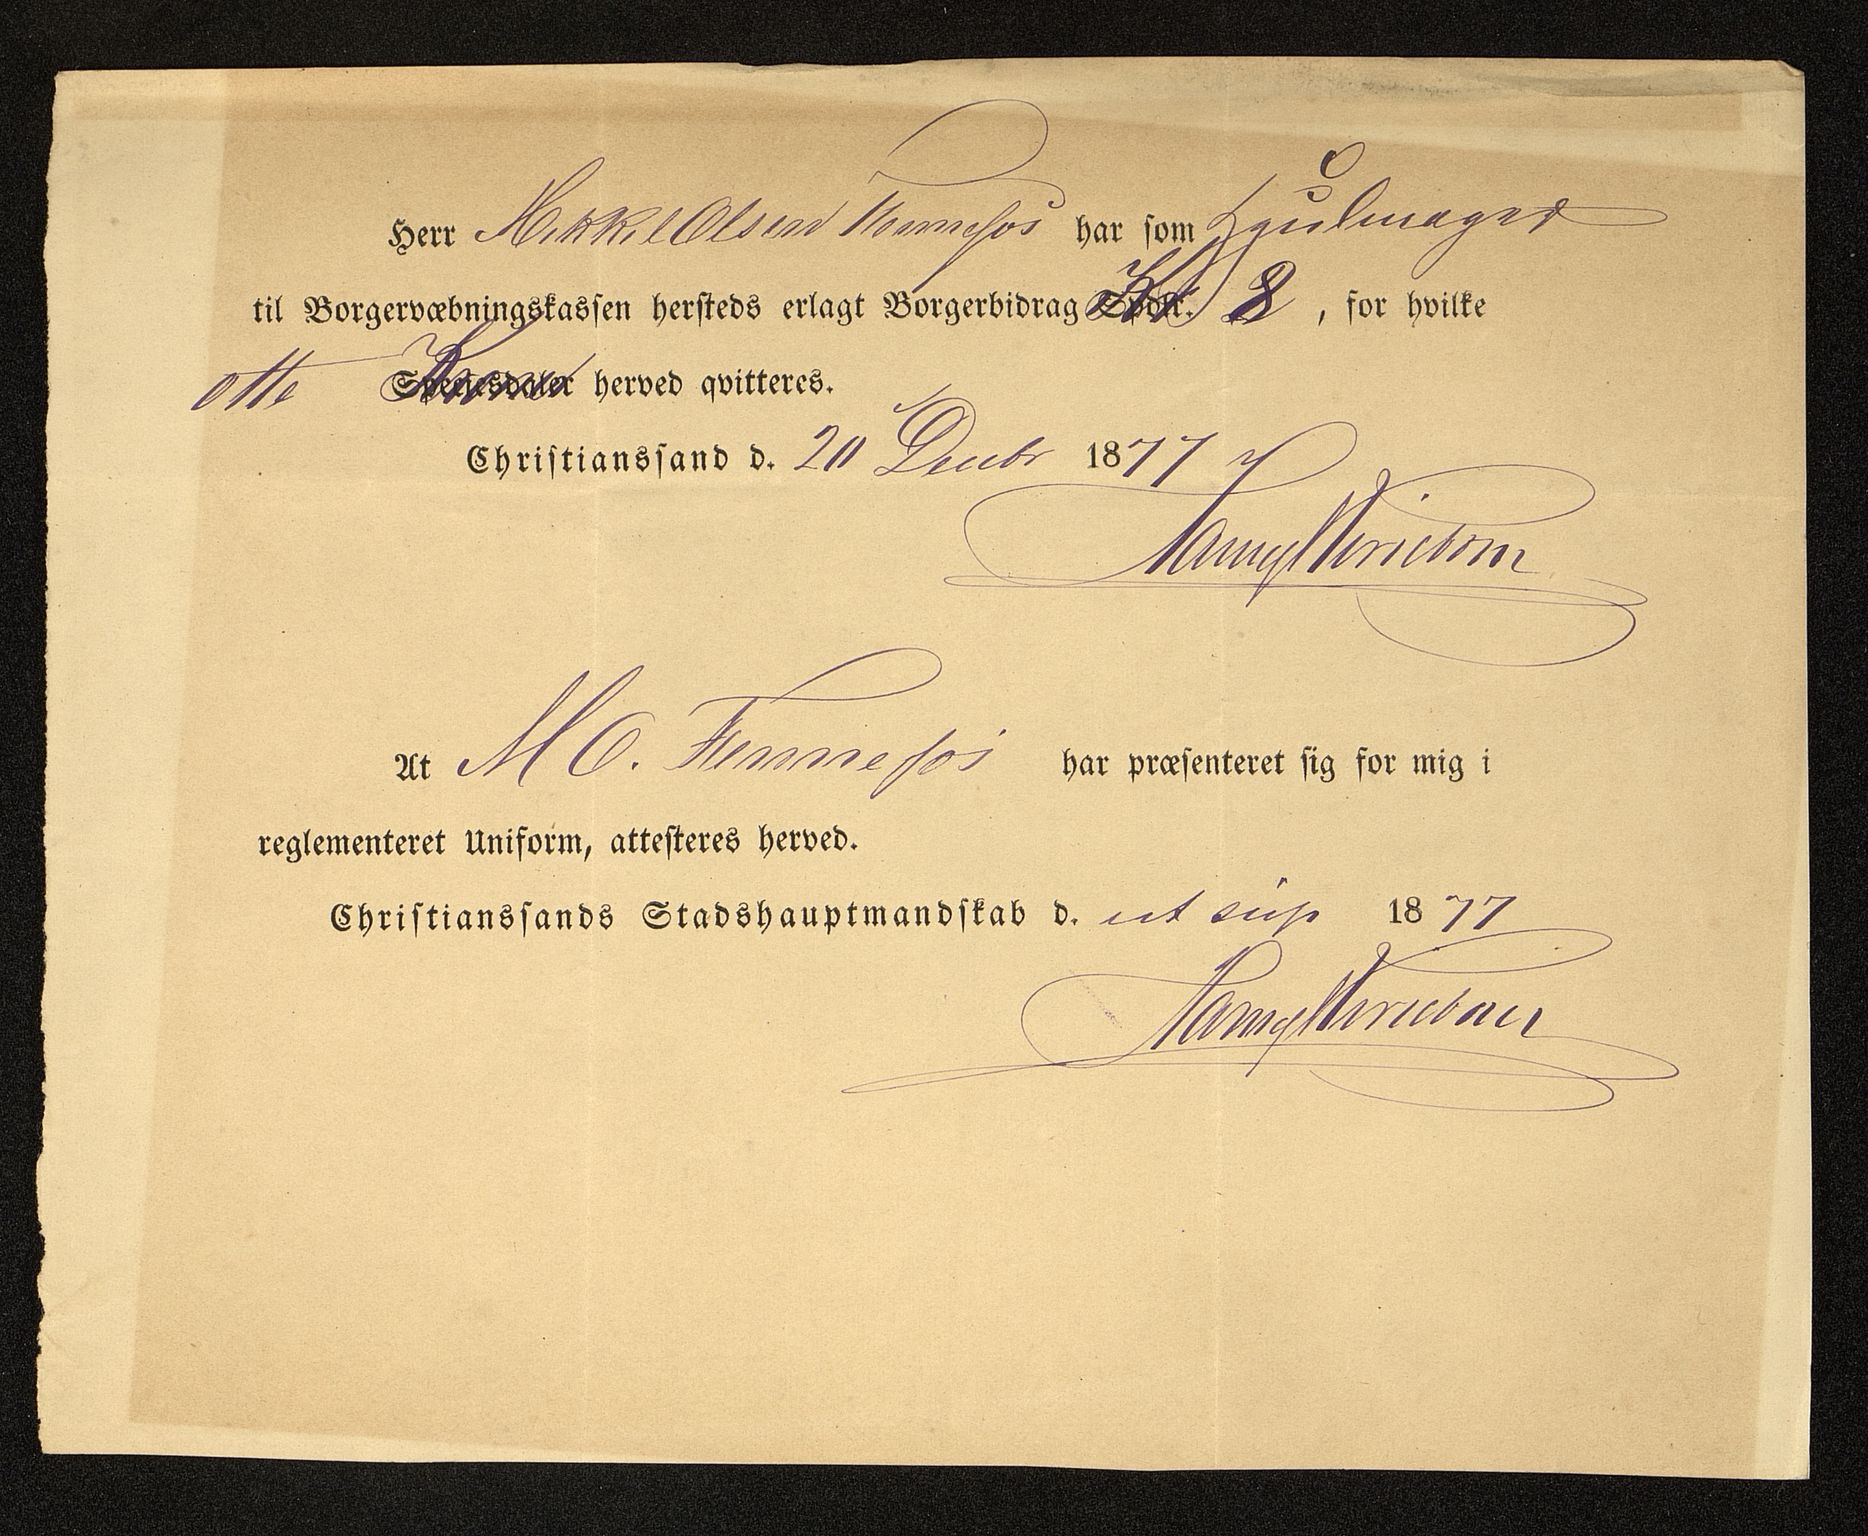 Herr Mikkel Olsen Fennefos har som Hjulmager
til Borgervæbningskassen hersteds erlagt Borgerbidrag Kr 8, for hvilke
otte Kroner herved qvitteres.
Christianssand d. 20 Decbr 1877
At M O. Fennefos har præsenteret sig for mig i
reglementeret Uniform, attesteres herved.
Christianssands Stadshauptmandskab d. ut sup 1877